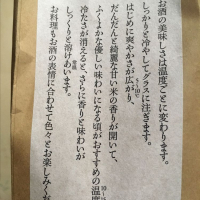 お酒の美味しさは温度ごとに変わります。
しっかりと冷やしてグラスに注ぎます。
はじめに爽やかさが広がり、
だんだんと綺麗な甘い米の香りが開いて、
ふくよかな優しい味わいになる頃がおすすめの温度
冷たさが消えると、さらに香りと味わいが
しっくりと溶けあいます。
お料理もお酒の表情に合わせて色々とお楽しみくだ